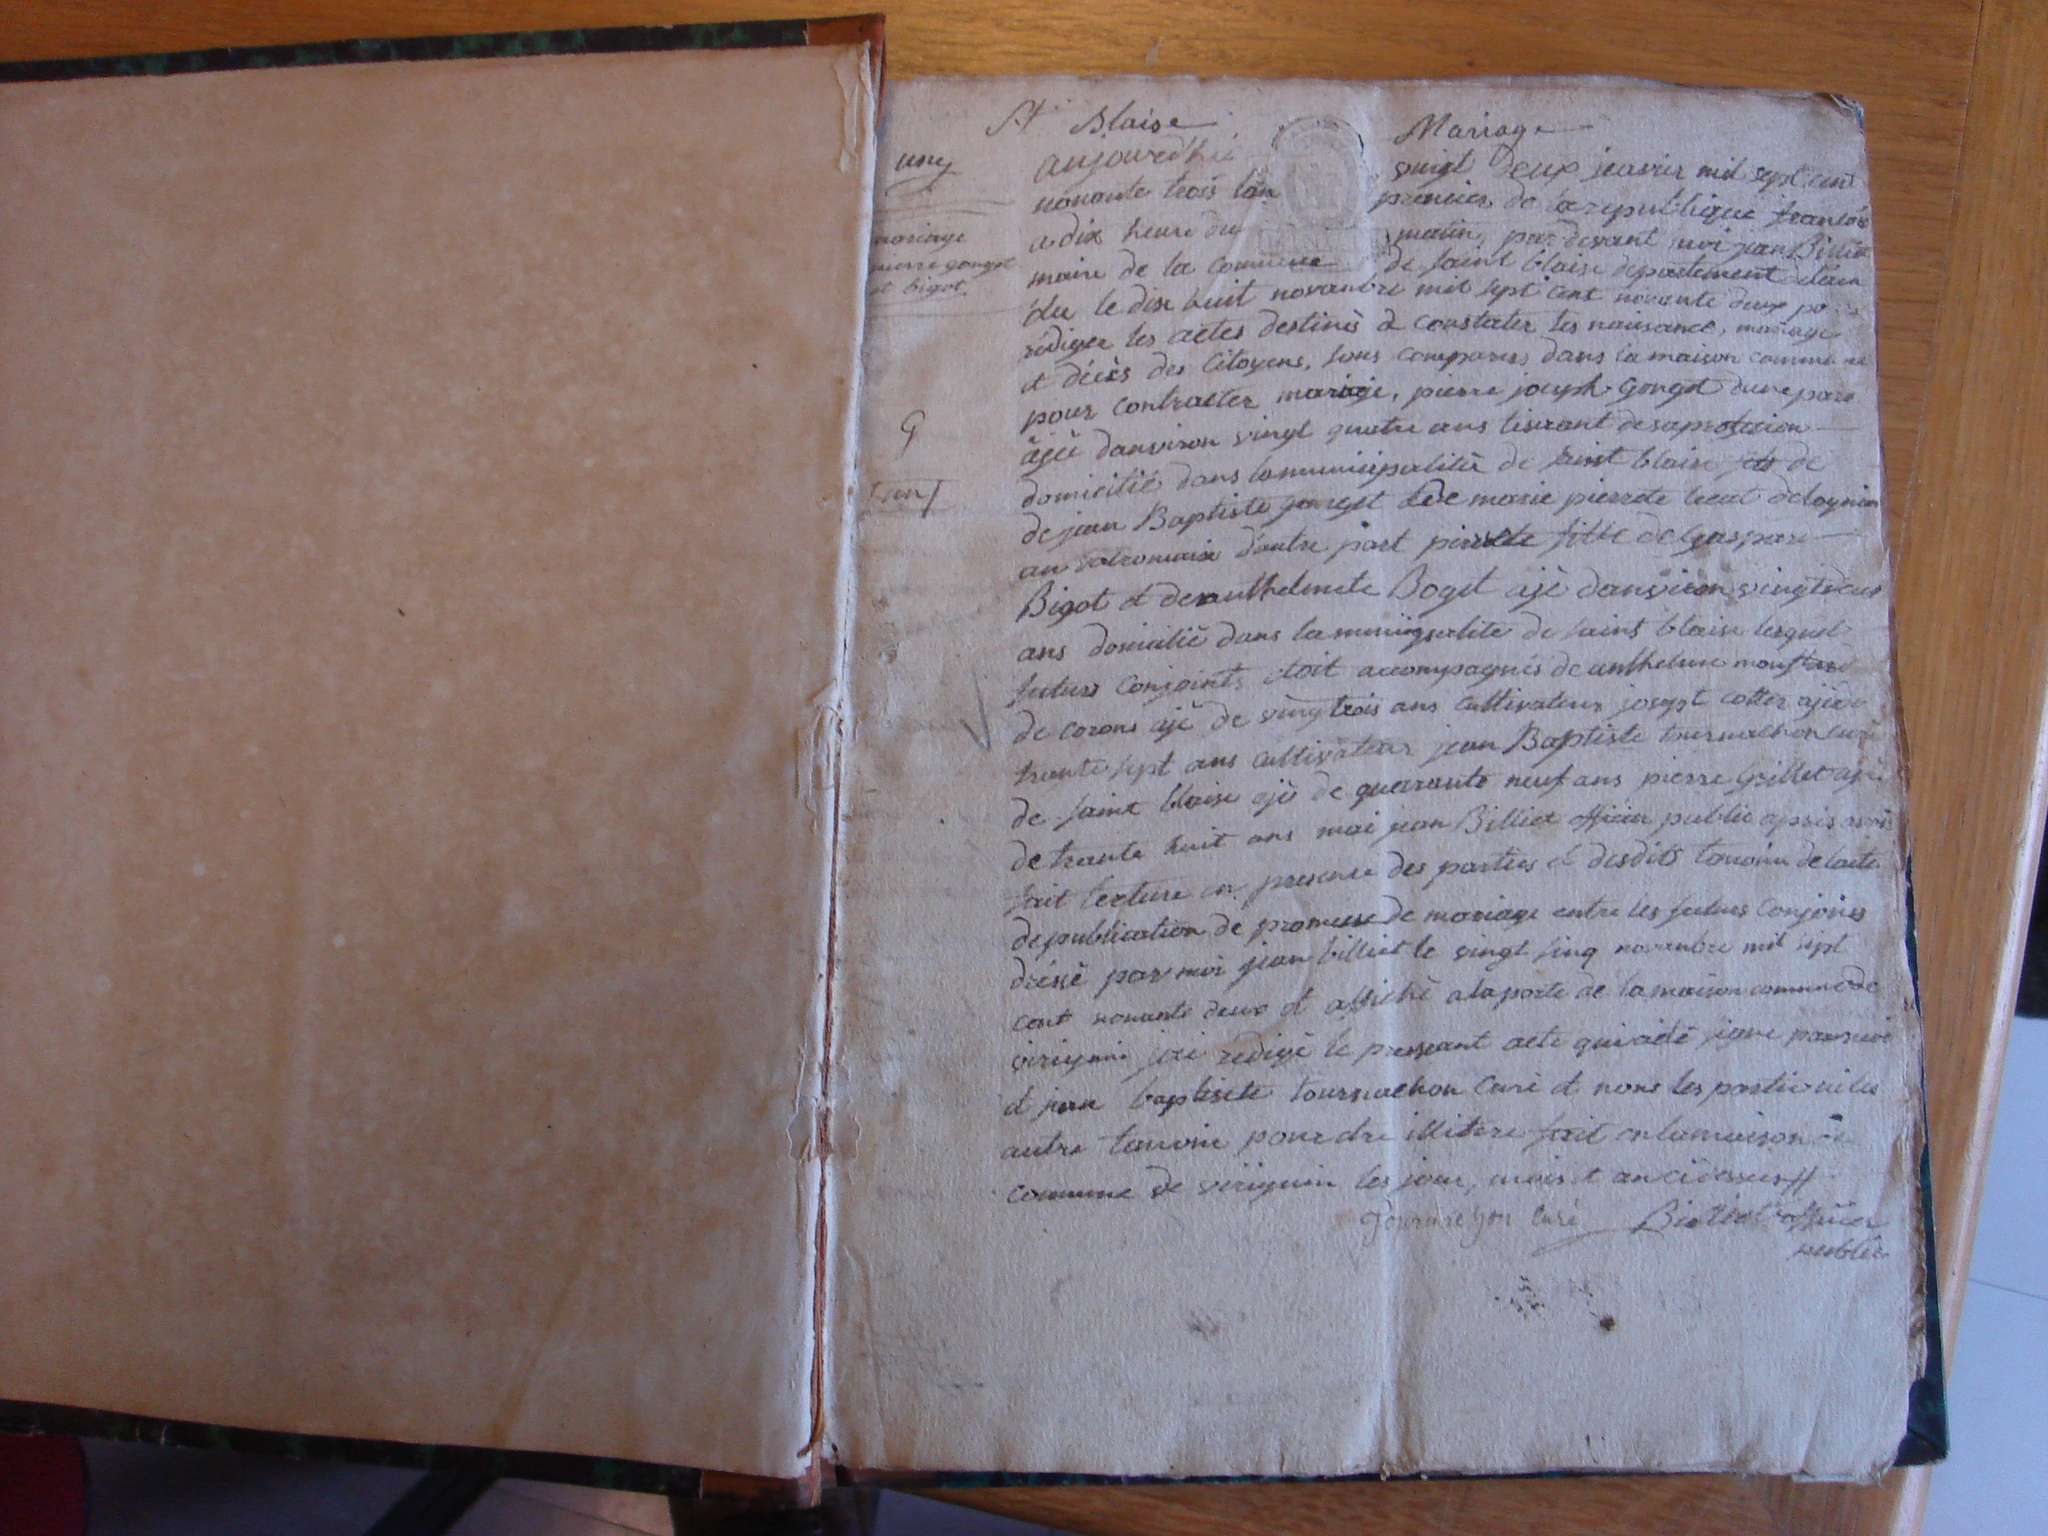 St Blaise Mariage
aujourdhui vingt deux janvier mil sept cent
nonante trois lan premier de la republique francois
a dix heure du matin, par devant moi jean Billiet
maire de la commune de saint blaise departement delain
élu le dix huit novambre mil sept cent nonante deux po
rédiger les actes destinés à constater les naissance, mariage
et décés des Citoyens, sons comparus dans la maison commune
pour contracter mariage, pierre joseph Gonget dune part
âjée danviron vingt quatre ans tiserant de saprofession
domicilié dans la municipalitée de saint blaise fils de
de jean Baptiste gonget et de marie pierrete
au valromaix dautre part pierrette fille de Gaspar
Bigot et de anthelmete Boget ajé danviron vingt deux
ans domicilié dans la municipalite de saint blaise lesquel
futurs conjoints étoit accompagnés de anthelme
de corons ajé de vingtrois ans cultivateur josept cotter ajé de
trante sept ans cultivateur jean Baptiste tournachon curé
de saint blaise ajé de quarante neuf ans pierre Grillet ajé
de trante huit ans moi jean Billiet officier public apris avoir
fait lecture en presence des parties et desdits temoins de lacte
de publication de promesse de mariage entre les futurs Conjoins
dréssé par moi jean billiet le vingt sinq novambre mil sept
cent nonante deux et affiché a la porte de la maison commune de
virignin jai redigé le present acte qui a été signé par moi
et jean baptiste tournachon Curé et nons les partie ni les
autre temoin pour etre illitere fait en la maison
commune de virignin les jour, mois et an ci dessus //
Tournachon Curé Billiet officier
public
mariage
pierre gonget
et bigot
G